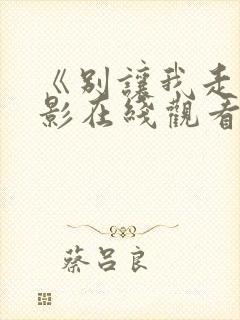 《别讓我走
影在綫觀看
蔡吕良